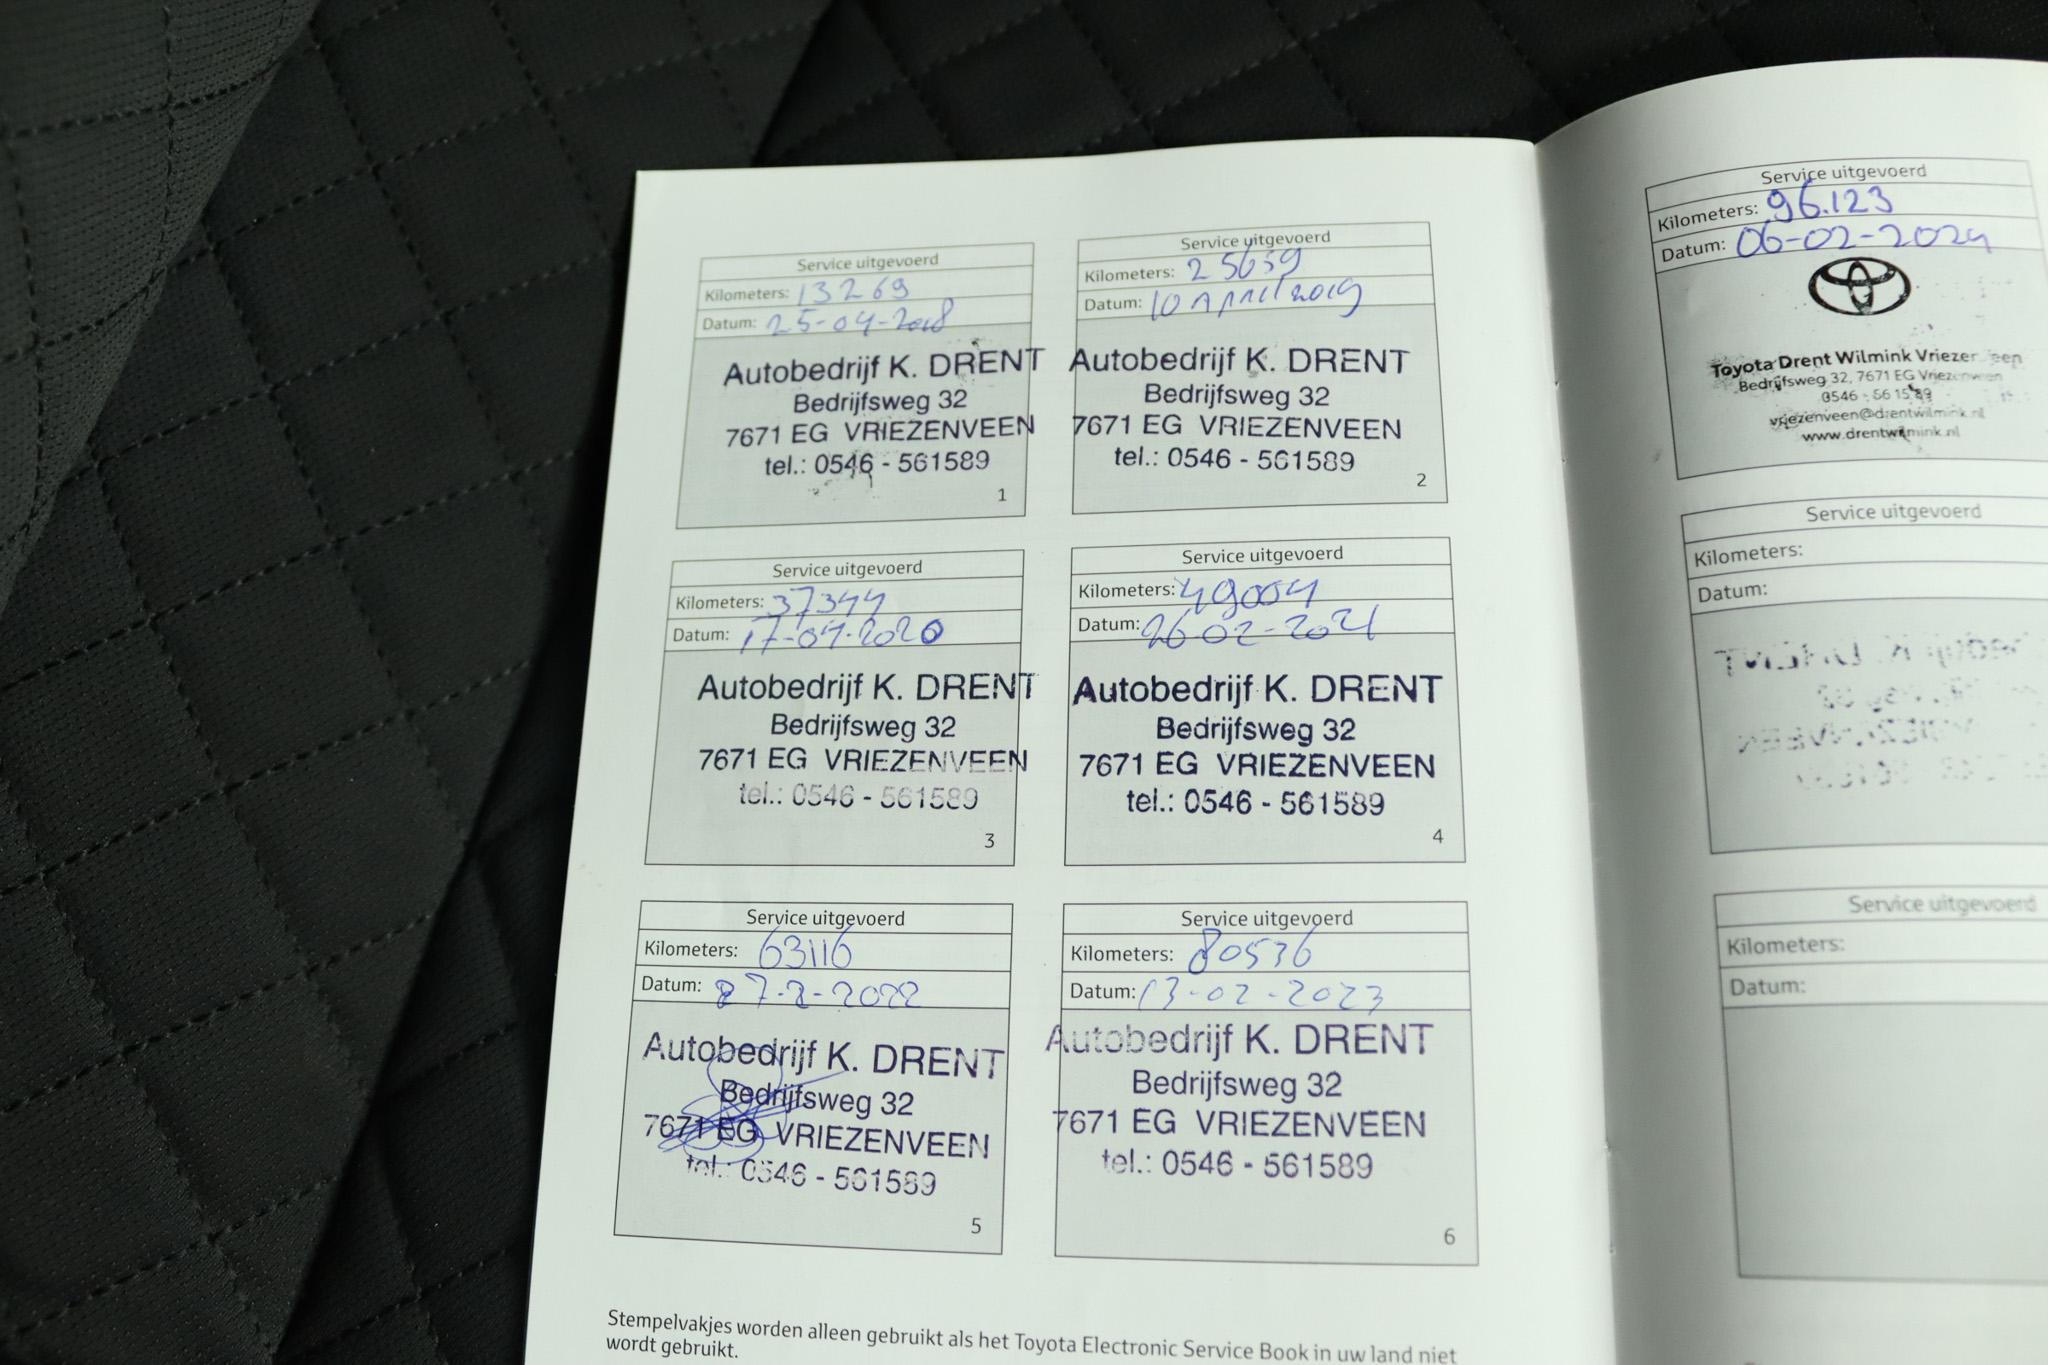 Service uitgevoerd
Kilometers: 13269
Datum: 25-04-2018
Autobedrijf K. DRENT
Bedrijfsweg 32
7671 EG VRIEZENVEEN
tel.: 0546 - 561589
1
Service uitgevoerd
Kilometers: 25659
Datum: 10 April 2019
Autobedrijf K. DRENT
Bedrijfsweg 32
7671 EG VRIEZENVEEN
tel.: 0546 - 561589
2
Service uitgevoerd
Kilometers: 37344
Datum: 17-04-2020
Autobedrijf K. DRENT
Bedrijfsweg 32
7671 EG VRIEZENVEEN
tel.: 0546 - 561589
3
Service uitgevoerd
Kilometers: 49004
Datum: 26-02-2021
Autobedrijf K. DRENT
Bedrijfsweg 32
7671 EG VRIEZENVEEN
tel.: 0546 - 561589
4
Service uitgevoerd
Kilometers: 63116
Datum: 27-2-2022
Autobedrijf K. DRENT
Bedrijfsweg 32
7671 EG VRIEZENVEEN
tel.: 0546 - 561589
5
Service uitgevoerd
Kilometers: 80536
Datum: 13-02-2023
Autobedrijf K. DRENT
Bedrijfsweg 32
7671 EG VRIEZENVEEN
tel.: 0546 - 561589
6
Stempelvakjes worden alleen gebruikt als het Toyota Electronic Service Book in uw land niet
wordt gebruikt.
Service uitgevoerd
Kilometers: 96.123
Datum: 06-02-2024
Toyota Drent Wilmink Vriezenveen
Bedrijfsweg 32, 7671 EG Vriezenveen
0546 - 561589
vriezenveen@drentwilmink.nl
www.drentwilmink.nl
Service uitgevoerd
Kilometers:
Datum:
Service uitgevoerd
Kilometers:
Datum: